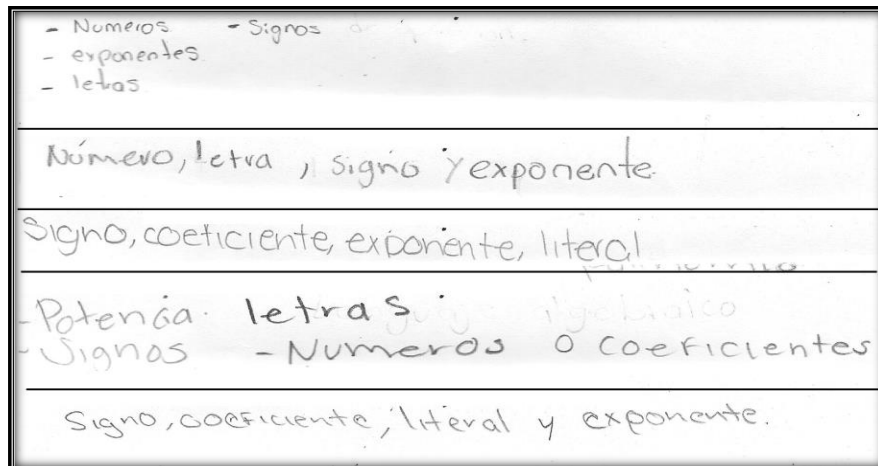 - Numeros - Signos
- exponentes
- letras
Número, letra, signo y exponente.
Signo, coeficiente, exponente, literal
- Potencia. letras.
- Signos - Numeros o coeficientes
Signo, coeficiente, literal y exponente.